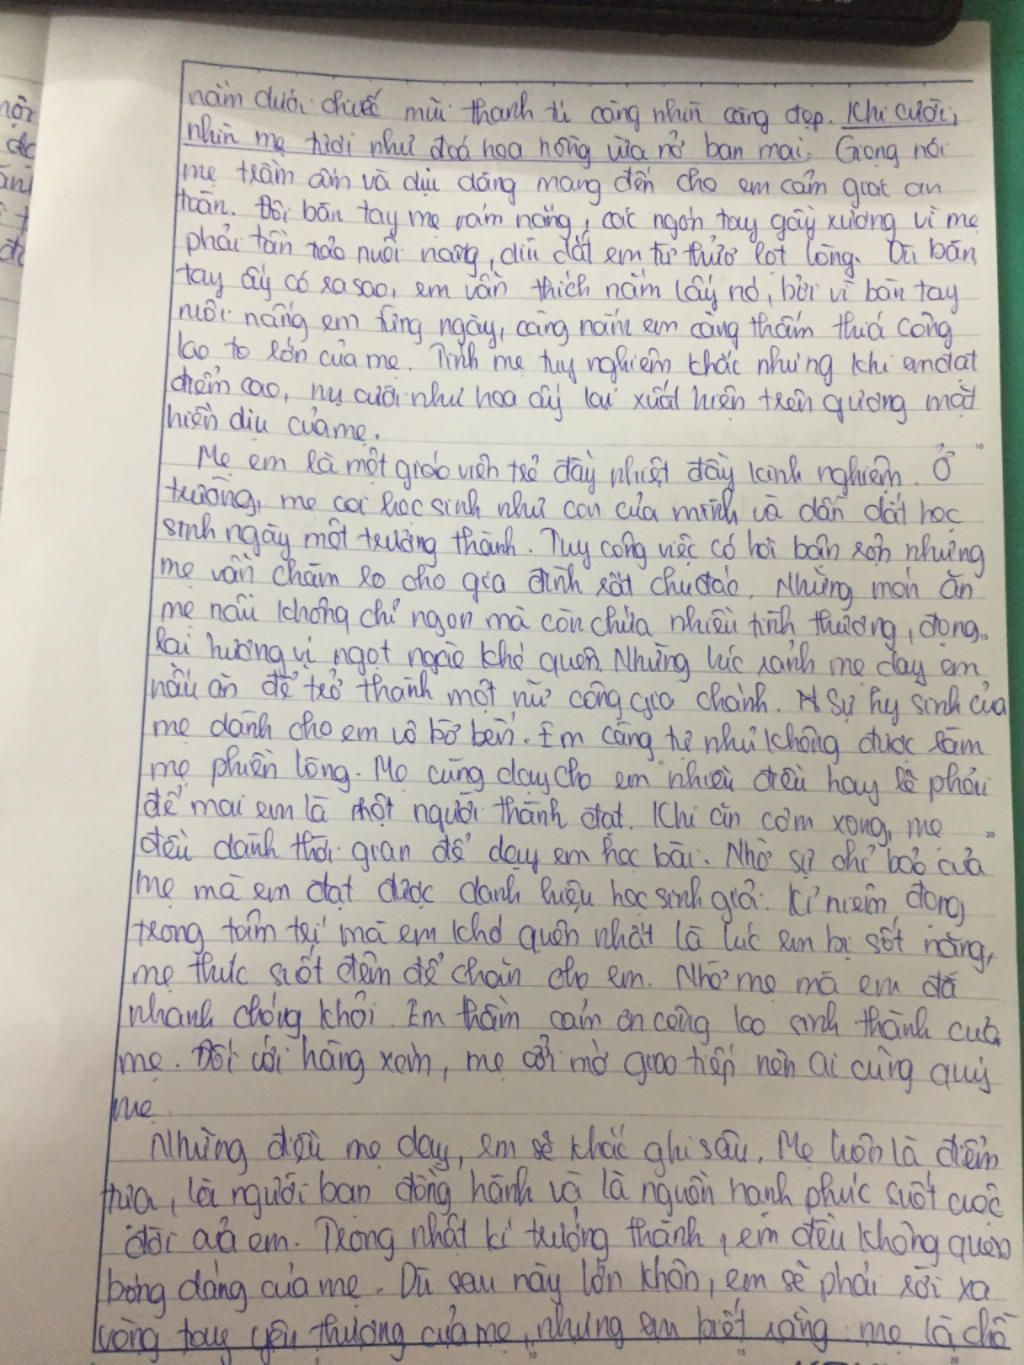 nằm dưới chiếc mũi thanh tú càng nhìn càng đẹp. Khi cười,
nhìn mẹ tươi như đoá hoa hồng vừa nở ban mai. Giọng nói
mẹ trầm ấm và dịu dàng mang đến cho em cảm giác an
toàn. Đôi bàn tay mẹ rám nắng, các ngón tay gầy xương vì mẹ
phải tần tảo nuôi nấng, dìu dắt em từ thuở lọt lòng. Dù bàn
tay ấy có ra sao, em vẫn thích nắm lấy nó, bởi vì bàn tay
nuôi nấng em từng ngày, càng nắm em càng thấm thuá công
lao to lớn của mẹ. Tính mẹ tuy nghiêm khắc nhưng khi em đạt
điểm cao, nụ cười như hoa ấy lại xuất hiện trên gương mặt
hiền dịu của mẹ.
Mẹ em là một giáo viên trẻ đầy nhiệt đầy kinh nghiệm. Ở
trường, mẹ coi học sinh như con của mình và dẫn dắt học
sinh ngày một trưởng thành. Tuy công việc có hơi bận rộn nhưng
mẹ vẫn chăm lo cho gia đình rất chu đáo. Những món ăn
mẹ nấu không chỉ ngon mà còn chứa nhiều tình thương, đọng
lại hương vị ngọt ngào khó quên. Những lúc rảnh mẹ dạy em
nấu ăn để trở thành một nữ công gia chánh. Sự hy sinh của
mẹ dành cho em vô bờ bến. Em càng tự nhủ không được làm
mẹ phiền lòng. Mẹ cũng dạy cho em nhiều điều hay lẽ phải
để mai em là một người thành đạt. Khi ăn cơm xong, mẹ
đều dành thời gian để dạy em học bài. Nhờ sự chỉ bảo của
mẹ mà em đạt được danh hiệu học sinh giỏi. Kỉ niệm đọng
trong tâm trí mà em khó quên nhất là lúc em bị sốt nặng,
mẹ thức suốt đêm để chăm cho em. Nhờ mẹ mà em đã
nhanh chóng khỏi. Em thầm cảm ơn công lao sinh thành của
mẹ. Đối với hàng xóm, mẹ cởi mở giao tiếp nên ai cũng quý
mẹ.
Những điều mẹ dạy, em sẽ khắc ghi sâu. Mẹ luôn là điểm
tựa, là người bạn đồng hành và là nguồn hạnh phúc suốt cuộc
đời của em. Trong nhật kí trưởng thành, em đều không quên
bóng dáng của mẹ. Dù sau này lớn khôn, em sẽ phải rời xa
vòng tay yêu thương của mẹ, nhưng em biết rằng mẹ là chỗ